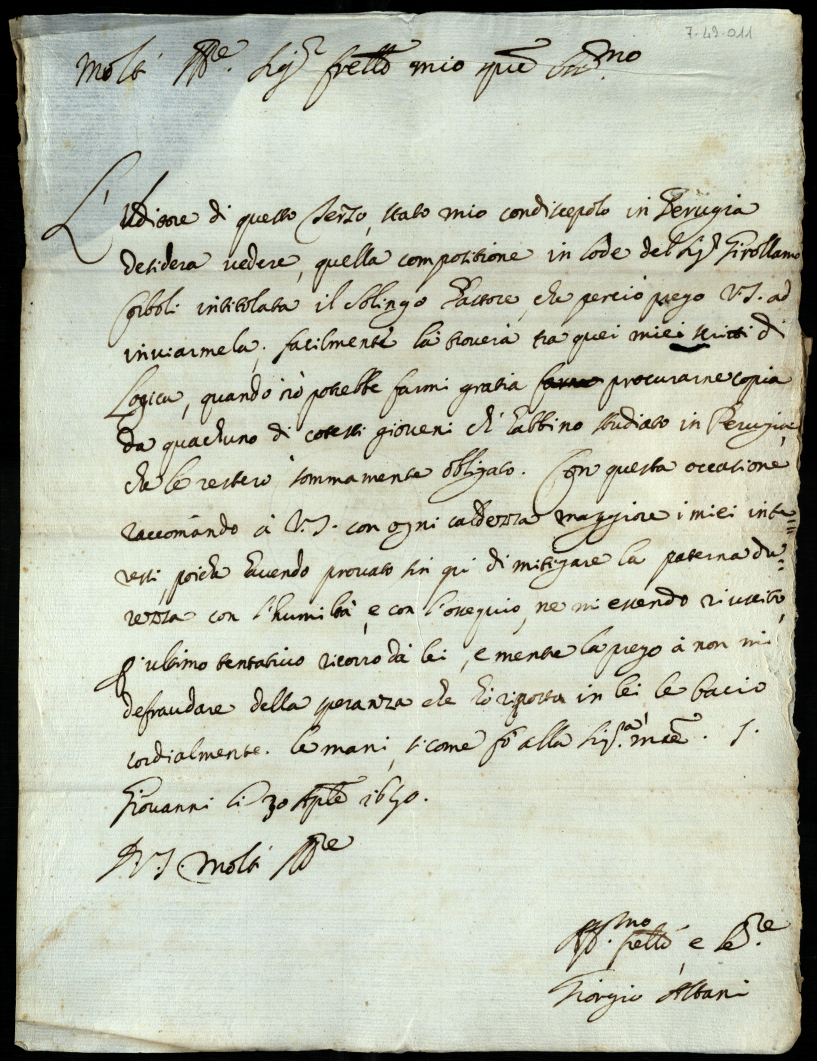 7-49-011
Molt' Ill.re Sig.r fr̃ello mio que
L'Uditore di questo Serzo, stato mio condiscepolo in Perugia
desidera vedere, quella compositione in lode del Sig.r Girollamo
intitolata il Solingo Pastore, che perciò prego V.S. ad
inviarmela; facilmente la troverà tra quei miei scritti di
Logica, quando nò potesse farmi gratia procurarne copia
da qualchuno di cotesti gioveni ch'habbino studiato in Perugia,
che le resterò sommamente obligato. Con questa occasione
raccomando à V.S. con ogni caldezza maggiore i miei inte=
ressi, poiche havendo provato sin qui di mitigare la paterna du=
rezza con l'humiltà, e con l'ossequio, ne mi essendo riuscito,
p ultimo tentativo ricorro da lei, e mentre la prego à non mi
defraudare della speranza che hò riposta in lei le bacio
cordialmente. le mani, sicome fò alla Sig.ra mr̃e. S.
Giovanni li 30 Aplẽ 1650.
D.V.S. Molt' Ill.re
Aff.mo fr̃ello, e Se.re
Giorgio Albani